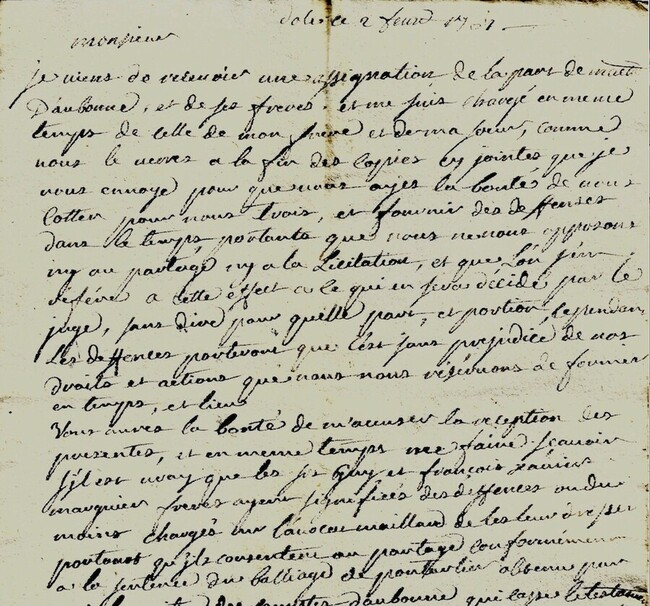 Dole ce 2 feuv.
monsieur
je viens de recevoir une assignation de la part de
Daubonne, et de ses freres, et me suis chargé en meme
temps de celle de mon frere et de ma soeur, comme
vous le verres a la fin des Copies cy jointes que je
vous envoye pour que vous ayes la bonté de vous
Cotter pour nous trois, et fournir des deffenses
dans le temps portants que nous ne nous opposons
ny au partage ny a la Licitation, et que L'on s'en
refére a cette effect a ce qui en sera décidé par le
juge, sans dire pour quelle part, et portion, Cependant
Les deffences porteront que c'est sans prejudice de nos
droits et actions que nous nous réservons de former
en temps, et lieu
Vous aures la bonté de m'accuser la reception des
presentes, et en meme temps me faire scavoir
s'jl est vray que les srs Guy et françois Xavier
marquier freres ayent signifiées des deffences ou du
moins chargés mr L'avocat maillard de les leur dresser
portant qu'ils consentent au partage conformement
a la sentence du balliage de pontarlier obtenue par
daubonne qui casse le testament